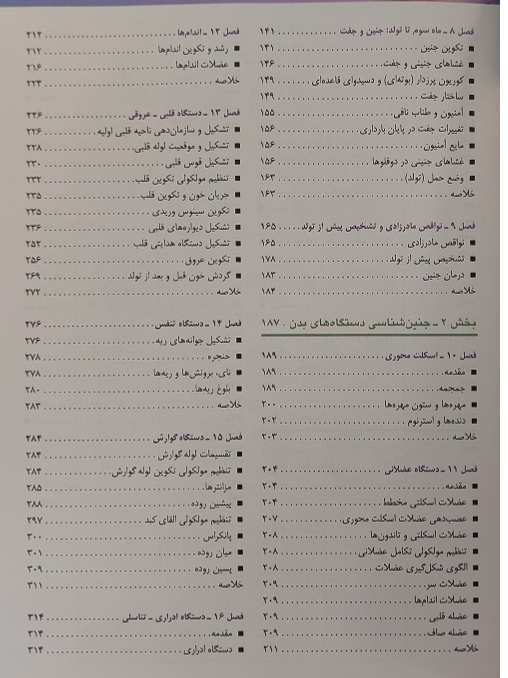 فصل ۸ ـ ماه سوم تا تولد: جنین و جفت ۱۴۱
■ تکوین جنین ۱۴۱
■ غشاهای جنینی و جفت ۱۴۶
■ کوریون پرزدار (بوته‌ای) و دسیدوای قاعده‌ای ۱۴۹
■ ساختار جفت ۱۴۹
■ آمنیون و طناب نافی ۱۵۵
■ تغییرات جفت در پایان بارداری ۱۵۶
■ مایع آمنیون ۱۵۶
■ غشاهای جنینی در دوقلوها ۱۵۶
■ وضع حمل (تولد) ۱۶۳
خلاصه ۱۶۳
فصل ۹ ـ نواقص مادرزادی و تشخیص پیش از تولد ۱۶۵
■ نواقص مادرزادی ۱۶۵
■ تشخیص پیش از تولد ۱۷۸
■ درمان جنین ۱۸۳
خلاصه ۱۸۴
بخش ۲ ـ جنین‌شناسی دستگاه‌های بدن . ۱۸۷
فصل ۱۰ ـ اسکلت محوری ۱۸۹
■ مقدمه ۱۸۹
■ جمجمه ۱۸۹
■ مهره‌ها و ستون مهره‌ها ۲۰۰
■ دنده‌ها و استرنوم ۲۰۲
خلاصه ۲۰۳
فصل ۱۱ ـ دستگاه عضلانی ۲۰۴
■ مقدمه ۲۰۴
■ عضلات اسکلتی مخطط ۲۰۴
■ عصب‌دهی عضلات اسکلت محوری ۲۰۷
■ عضلات اسکلتی و تاندون‌ها ۲۰۸
■ تنظیم مولکولی تکامل عضلانی ۲۰۸
■ الگوی شکل‌گیری عضلات ۲۰۸
■ عضلات سر ۲۰۹
■ عضلات اندام‌ها ۲۰۹
■ عضله قلبی ۲۰۹
■ عضله صاف ۲۰۹
خلاصه ۲۱۱
فصل ۱۲ ـ اندام‌ها ۲۱۲
■ رشد و تکوین اندام‌ها ۲۱۲
■ عضلات اندام‌ها ۲۱۶
خلاصه ۲۲۴
فصل ۱۳ ـ دستگاه قلبی ـ عروقی ۲۲۶
■ تشکیل و سازمان‌دهی ناحیه قلبی اولیه ۲۲۶
■ تشکیل و موقعیت لوله قلبی ۲۲۸
■ تشکیل قوس قلبی ۲۳۰
■ تنظیم مولکولی تکوین قلب ۲۳۲
■ جریان خون و تکوین قلب ۲۳۵
■ تکوین سینوس وریدی ۲۳۵
■ تشکیل دیواره‌های قلبی ۲۳۶
■ تشکیل دستگاه هدایتی قلب ۲۵۲
■ تکوین عروق ۲۵۶
■ گردش خون قبل و بعد از تولد ۲۶۹
خلاصه ۲۷۲
فصل ۱۴ ـ دستگاه تنفس ۲۷۶
■ تشکیل جوانه‌های ریه ۲۷۶
■ حنجره ۲۷۸
■ نای، برونش‌ها و ریه‌ها ۲۷۸
■ بلوغ ریه‌ها ۲۸۰
خلاصه ۲۸۳
فصل ۱۵ ـ دستگاه گوارش ۲۸۴
■ تقسیمات لوله گوارش ۲۸۴
■ تنظیم مولکولی تکوین لوله گوارش ۲۸۴
■ مزانترها ۲۸۵
■ پیشین روده ۲۸۸
■ تنظیم مولکولی القای کبد ۲۹۷
■ پانکراس ۳۰۰
■ میان روده ۳۰۱
■ پسین روده ۳۰۹
خلاصه ۳۱۱
فصل ۱۶ ـ دستگاه ادراری ـ تناسلی ۳۱۴
■ مقدمه ۳۱۴
■ دستگاه ادراری ۳۱۴